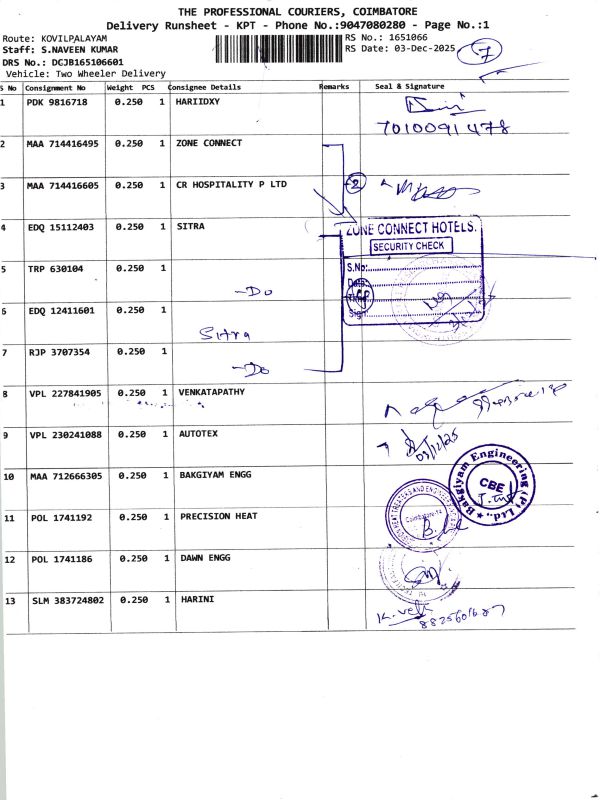 THE PROFESSIONAL COURIERS, COIMBATORE
Delivery Runsheet - KPT - Phone No.:9047080280 - Page No.:1
Route: KOVILPALAYAM
RS No.: 1651066
Staff: S.NAVEEN KUMAR
RS Date: 03-Dec-2025
7
DRS No.: DCJB165106601
Vehicle: Two Wheeler Delivery
S No Consignment No Weight PCS Consignee Details Remarks Seal & Signature
1 PDK 9816718 0.250 1 HARIIDXY
7010091478
2 MAA 714416495 0.250 1 ZONE CONNECT
3 MAA 714416605 0.250 1 CR HOSPITALITY P LTD
2
4 EDQ 15112403 0.250 1 SITRA
ZONE CONNECT HOTELS.
SECURITY CHECK
5 TRP 630104 0.250 1
S.No:
Date:
-Do
Sign:
6 EDQ 12411601 0.250 1
Sitra
7 RJP 3707354 0.250 1
-Do
8 VPL 227841905 0.250 1 VENKATAPATHY
9 VPL 230241088 0.250 1 AUTOTEX
03/12/25
10 MAA 712666305 0.250 1 BAKGIYAM ENGG
Bakgiyam Engineering (P) Ltd.,
CBE
11 POL 1741192 0.250 1 PRECISION HEAT
12 POL 1741186 0.250 1 DAWN ENGG
13 SLM 383724802 0.250 1 HARINI
8825601687